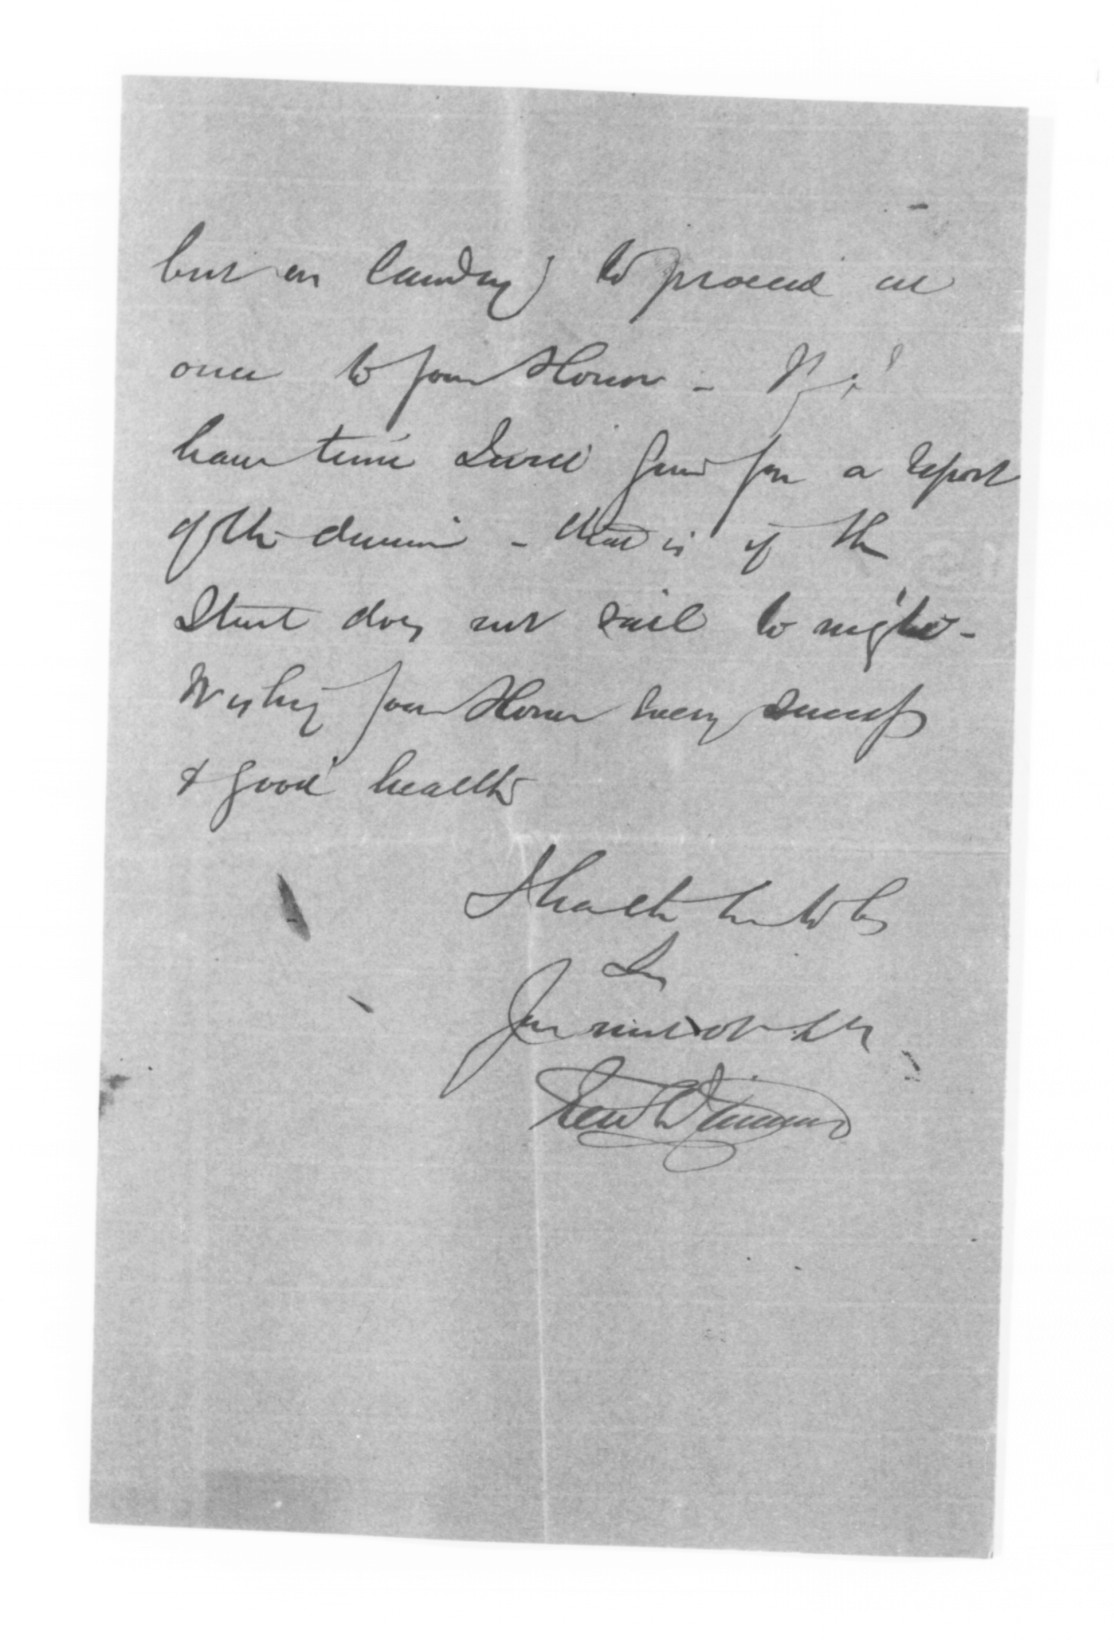 but on landing to proceed at
once to your Honor - If I
have time I will send you a report
of the division - that is if the
Sturt does not sail to night -
Wishing your Honor every success
& good health
I have the honor to be
Sir
Your most obt Sr